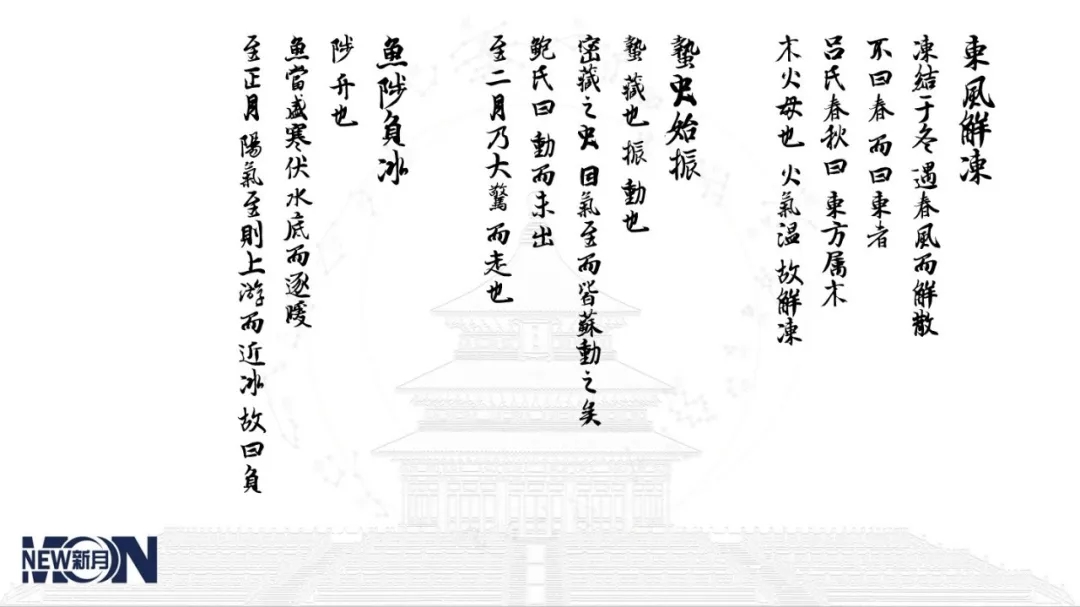 東風解凍
凍結于冬 遇春風而解散
不曰春 而曰東者
呂氏春秋曰 東方属木
木火母也 火氣温 故解凍
蟄虫始振
蟄 藏也 振 動也
密藏之虫 因氣至而皆蘇動之矣
鮑氏曰 動而未出
至二月乃大驚而走也
魚陟負冰
陟 升也
魚當盛寒伏水底而逐暖
至正月 陽氣至則上游而近冰 故曰負
NEW新月
MOON